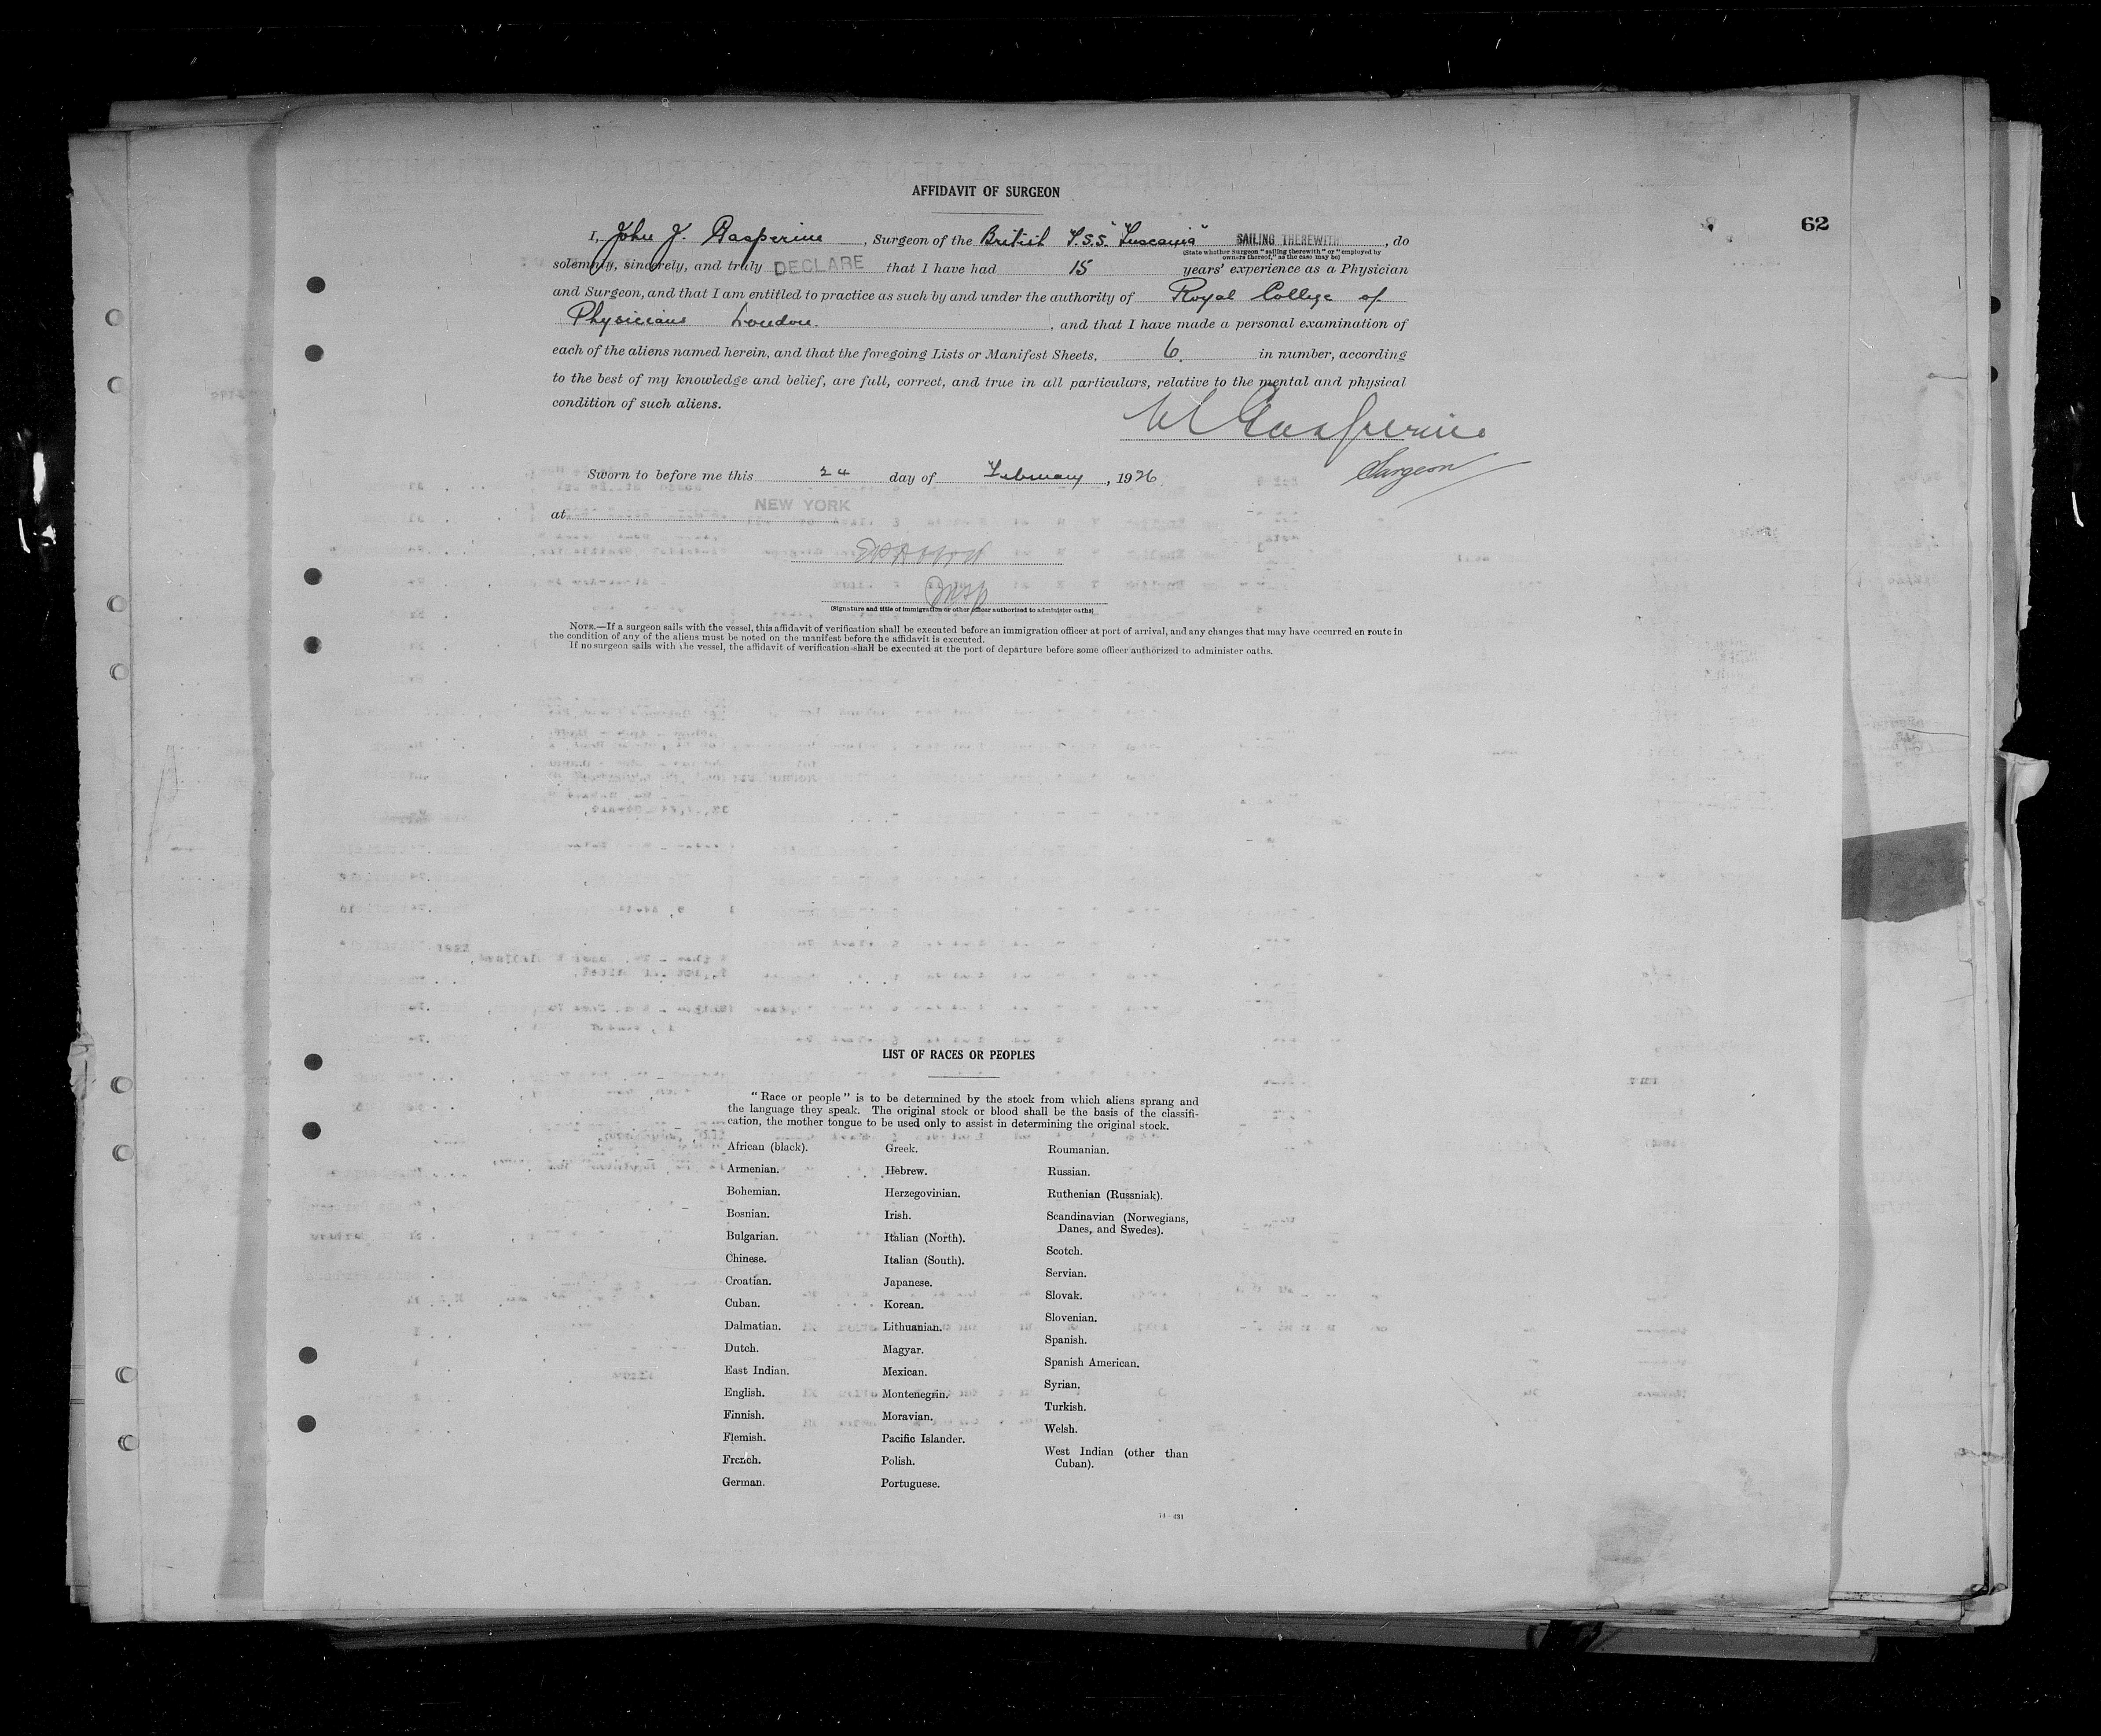 AFFIDAVIT OF SURGEON
62
I, John J. Gasperine, Surgeon of the British T.S.S. "Tuscania" SAILING THEREWITH, do
(State whether Surgeon "sailing therewith" or "employed by
owners thereof," as the case may be)
solemnly, sincerely, and truly DECLARE that I have had 15 years' experience as a Physician
and Surgeon, and that I am entitled to practice as such by and under the authority of Royal College of
Physicians London., and that I have made a personal examination of
each of the aliens named herein, and that the foregoing Lists or Manifest Sheets, 6. in number, according
to the best of my knowledge and belief, are full, correct, and true in all particulars, relative to the mental and physical
condition of such aliens.
Gasperine
Surgeon
Sworn to before me this 24 day of February, 1926
at NEW YORK
(Signature and title of immigration or other officer authorized to administer oaths)
NOTE.—If a surgeon sails with the vessel, this affidavit of verification shall be executed before an immigration officer at port of arrival, and any changes that may have occurred en route in
the condition of any of the aliens must be noted on the manifest before the affidavit is executed.
If no surgeon sails with the vessel, the affidavit of verification shall be executed at the port of departure before some officer authorized to administer oaths.
LIST OF RACES OR PEOPLES
"Race or people" is to be determined by the stock from which aliens sprang and
the language they speak. The original stock or blood shall be the basis of the classifi-
cation, the mother tongue to be used only to assist in determining the original stock.
African (black).
Armenian.
Bohemian.
Bosnian.
Bulgarian.
Chinese.
Croatian.
Cuban.
Dalmatian.
Dutch.
East Indian.
English.
Finnish.
Flemish.
French.
German.
Greek.
Hebrew.
Herzegovinian.
Irish.
Italian (North).
Italian (South).
Japanese.
Korean.
Lithuanian.
Magyar.
Mexican.
Montenegrin.
Moravian.
Pacific Islander.
Polish.
Portuguese.
Roumanian.
Russian.
Ruthenian (Russniak).
Scandinavian (Norwegians,
Danes, and Swedes).
Scotch.
Servian.
Slovak.
Slovenian.
Spanish.
Spanish American.
Syrian.
Turkish.
Welsh.
West Indian (other than
Cuban).